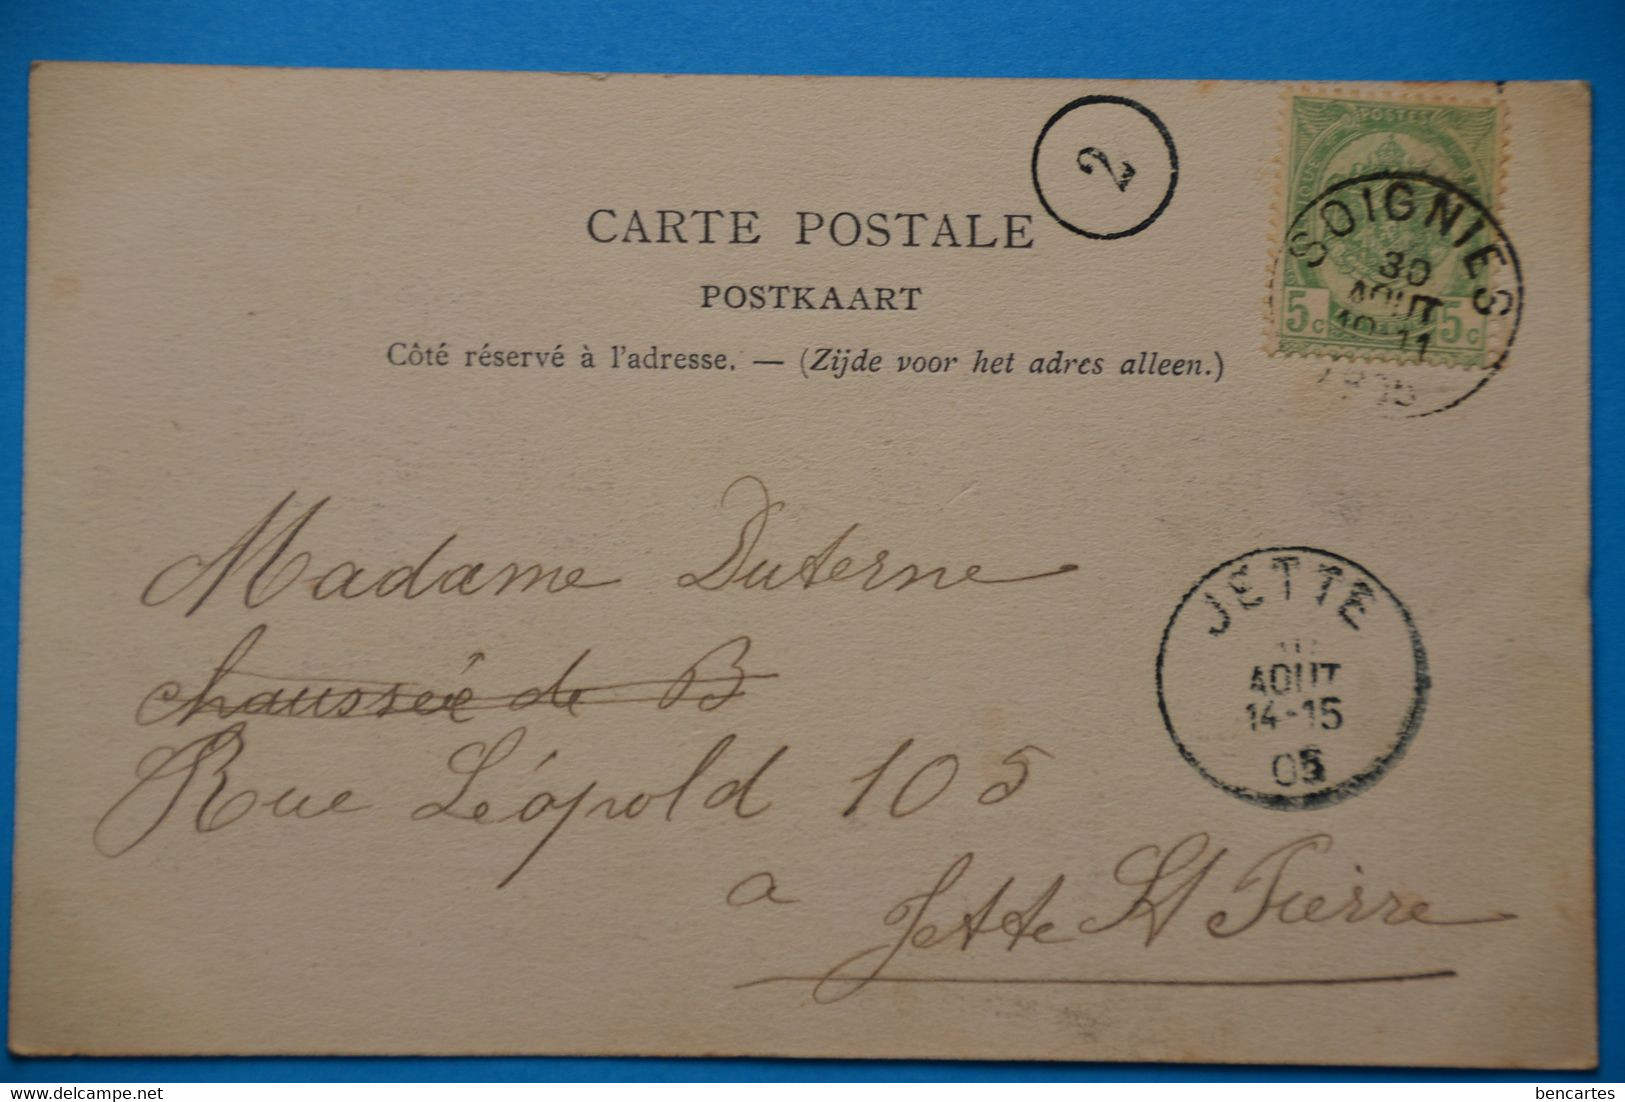 2
POSTES
CARTE POSTALE
POSTKAART
Côté réservé à l'adresse. — (Zijde voor het adres alleen.)
SOIGNIES
30
AOUT
10-11
5c 5c
Madame Duterne
chaussée de B
Rue Léopold 105
a Jette St Pierre
JETTE
AOUT
14-15
05
www.delcampe.net
bencartes